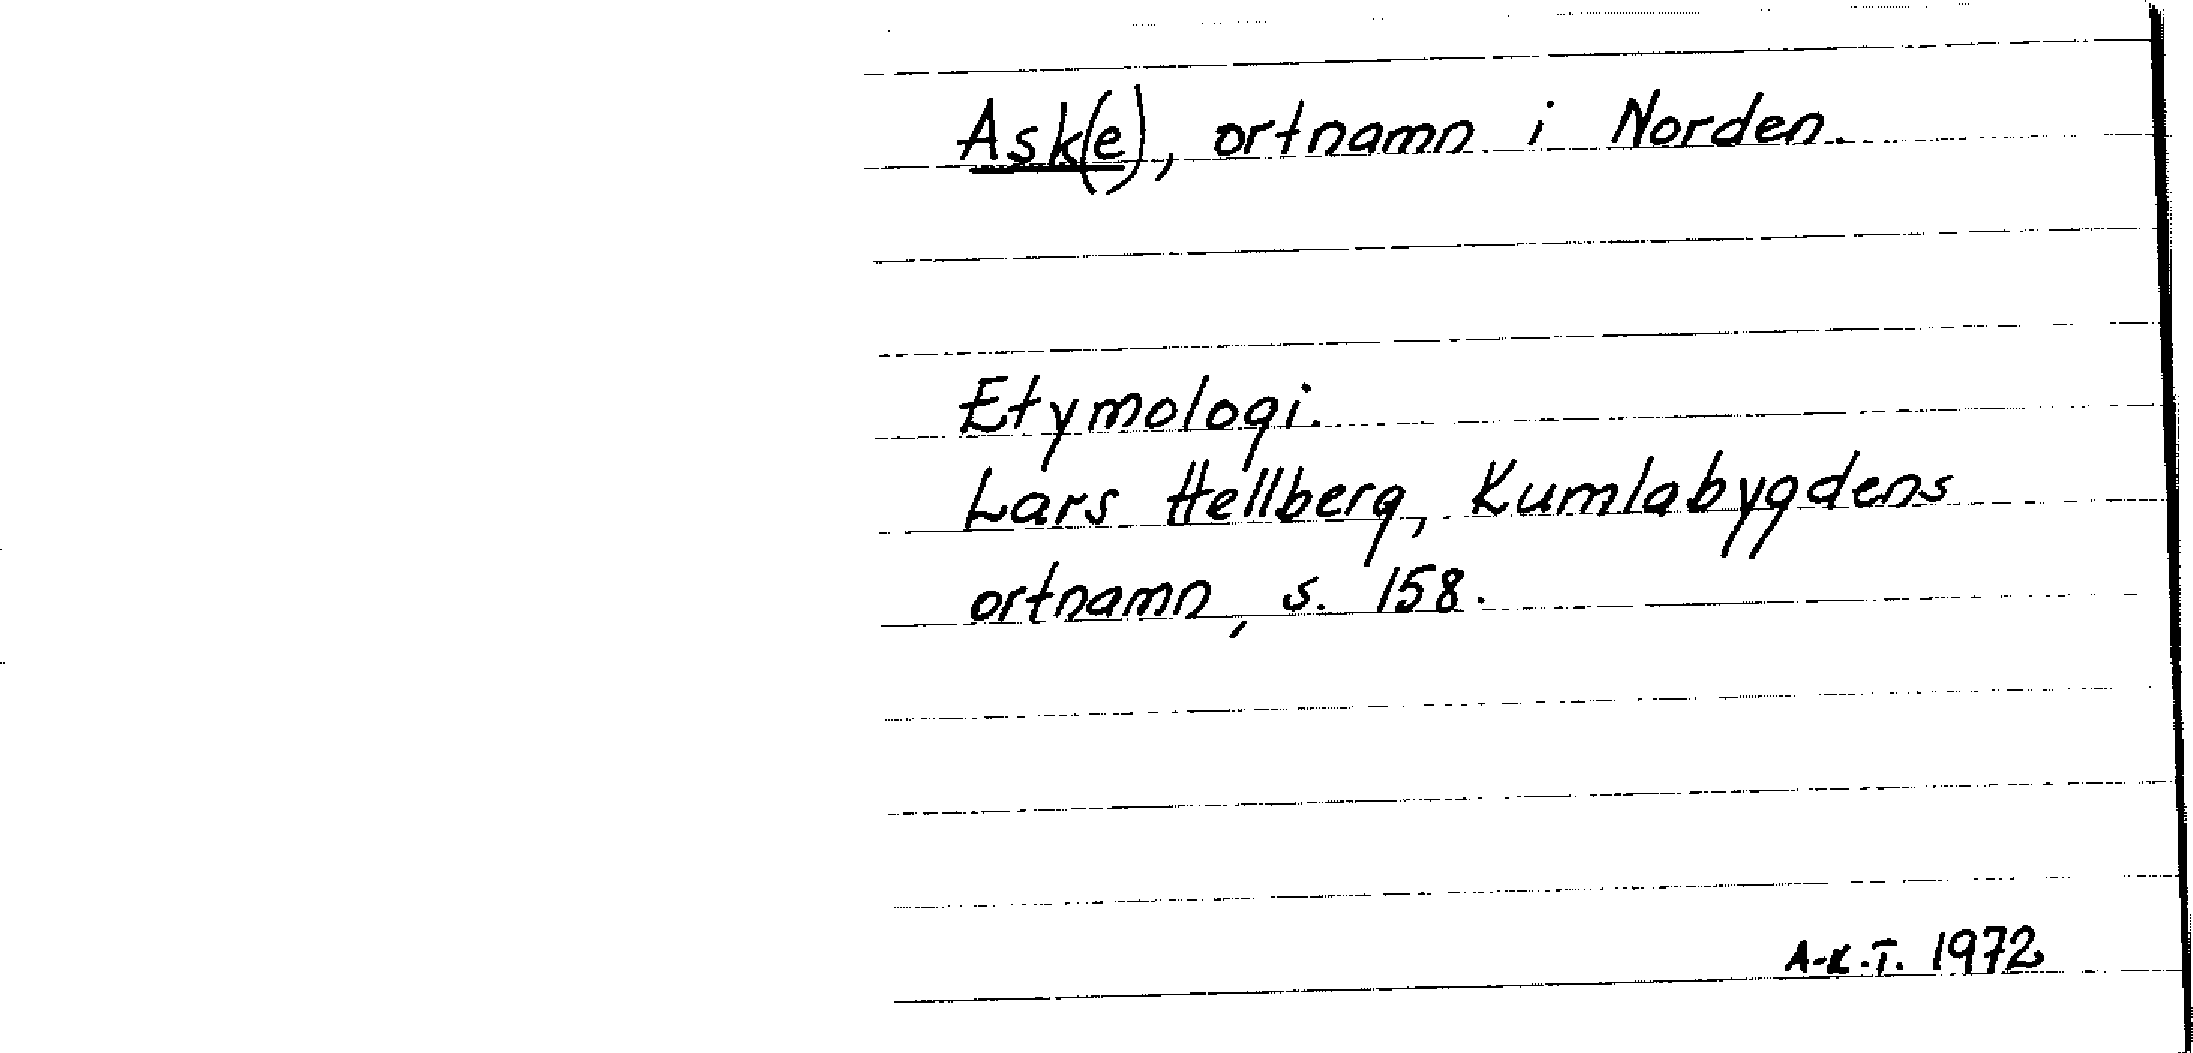 Ask(e), ortnamn i Norden.
Etymologi.
Lars Hellberg, Kumlabygdens
ortnamn, s. 158.
A-K.T. 1972